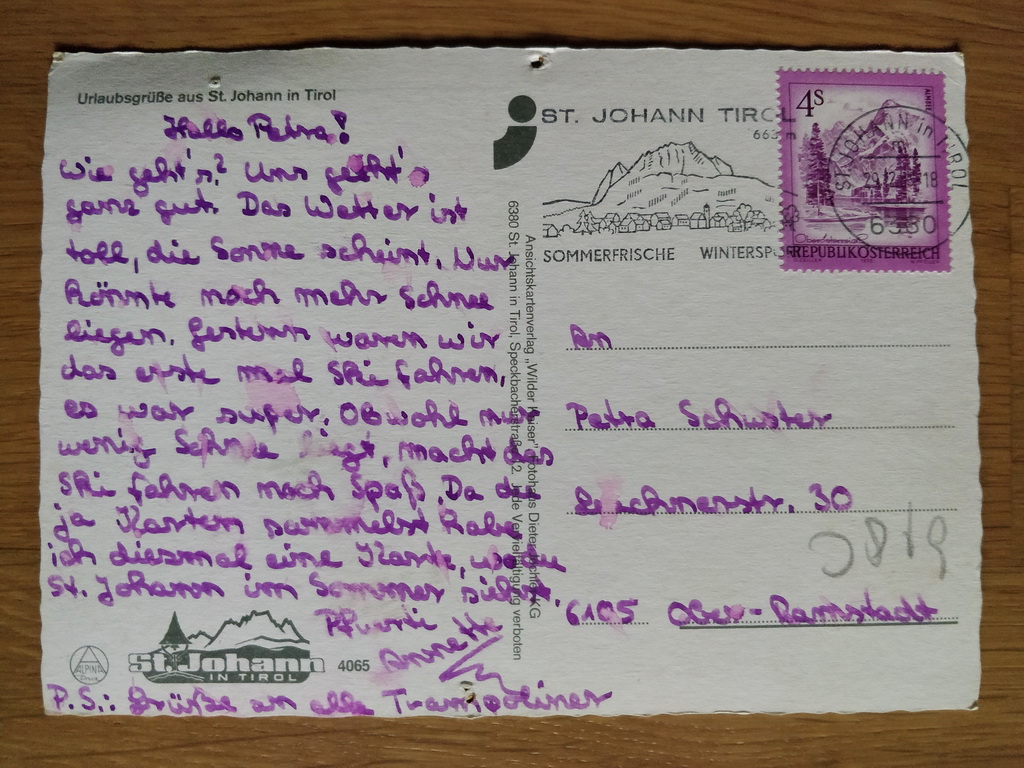 Urlaubsgrüße aus St. Johann in Tirol
Hallo Petra!
Wie geht's? Uns geht's
ganz gut. Das Wetter ist
toll, die Sonne scheint. Nur
könnte noch mehr Schnee
liegen. Gestern waren wir
das erste mal Ski fahren,
es war super. Obwohl nur
wenig Schnee liegt, macht das
Ski fahren noch Spaß. Da du
ja Karten sammelst habe
ich diesmal eine Karte, wo du
St. Johann im Sommer siehst.
Pfuerti
Annette
P.S.: Grüße an alle Trampoliner
ALPINA
St. Johann
IN TIROL
4065
Ansichtskartenverlag „Wilder Kaiser" Fotohaus Dieter KG
6380 St. Johann in Tirol, Speckbacherstraße 2. Jede Vervielfältigung verboten
ST. JOHANN TIROL
663 m
SOMMERFRISCHE WINTERSP
4S
REPUBLIK ÖSTERREICH
ST. JOHANN in TIROL
6380
An
Petra Schuster
30
6105 Ober-Ramstadt